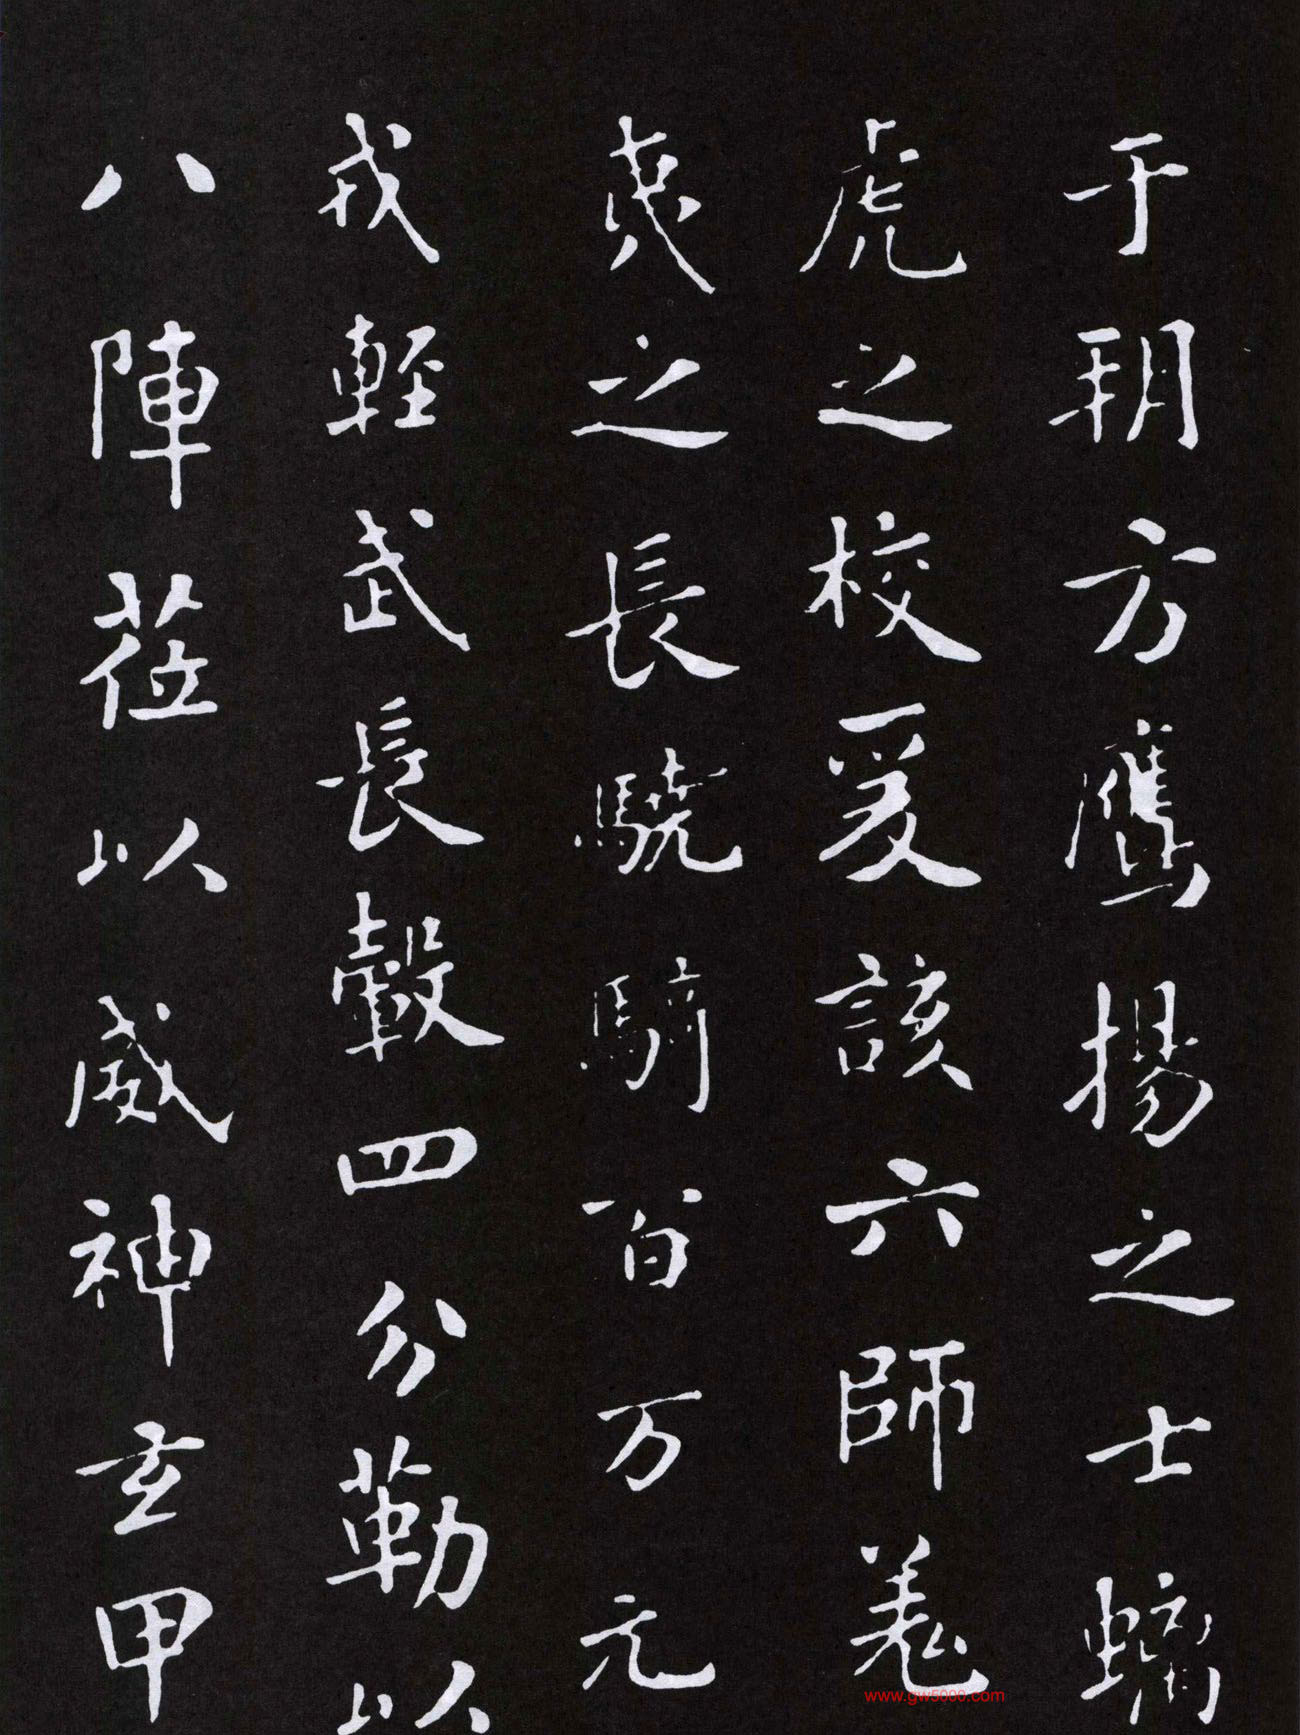 于朔方鷹揚之士螭
虎之校爰該六師羌
夷之長驍騎百万元
戎輕武長轂四分勒以
八陣莅以威神玄甲
www.gw5000.com